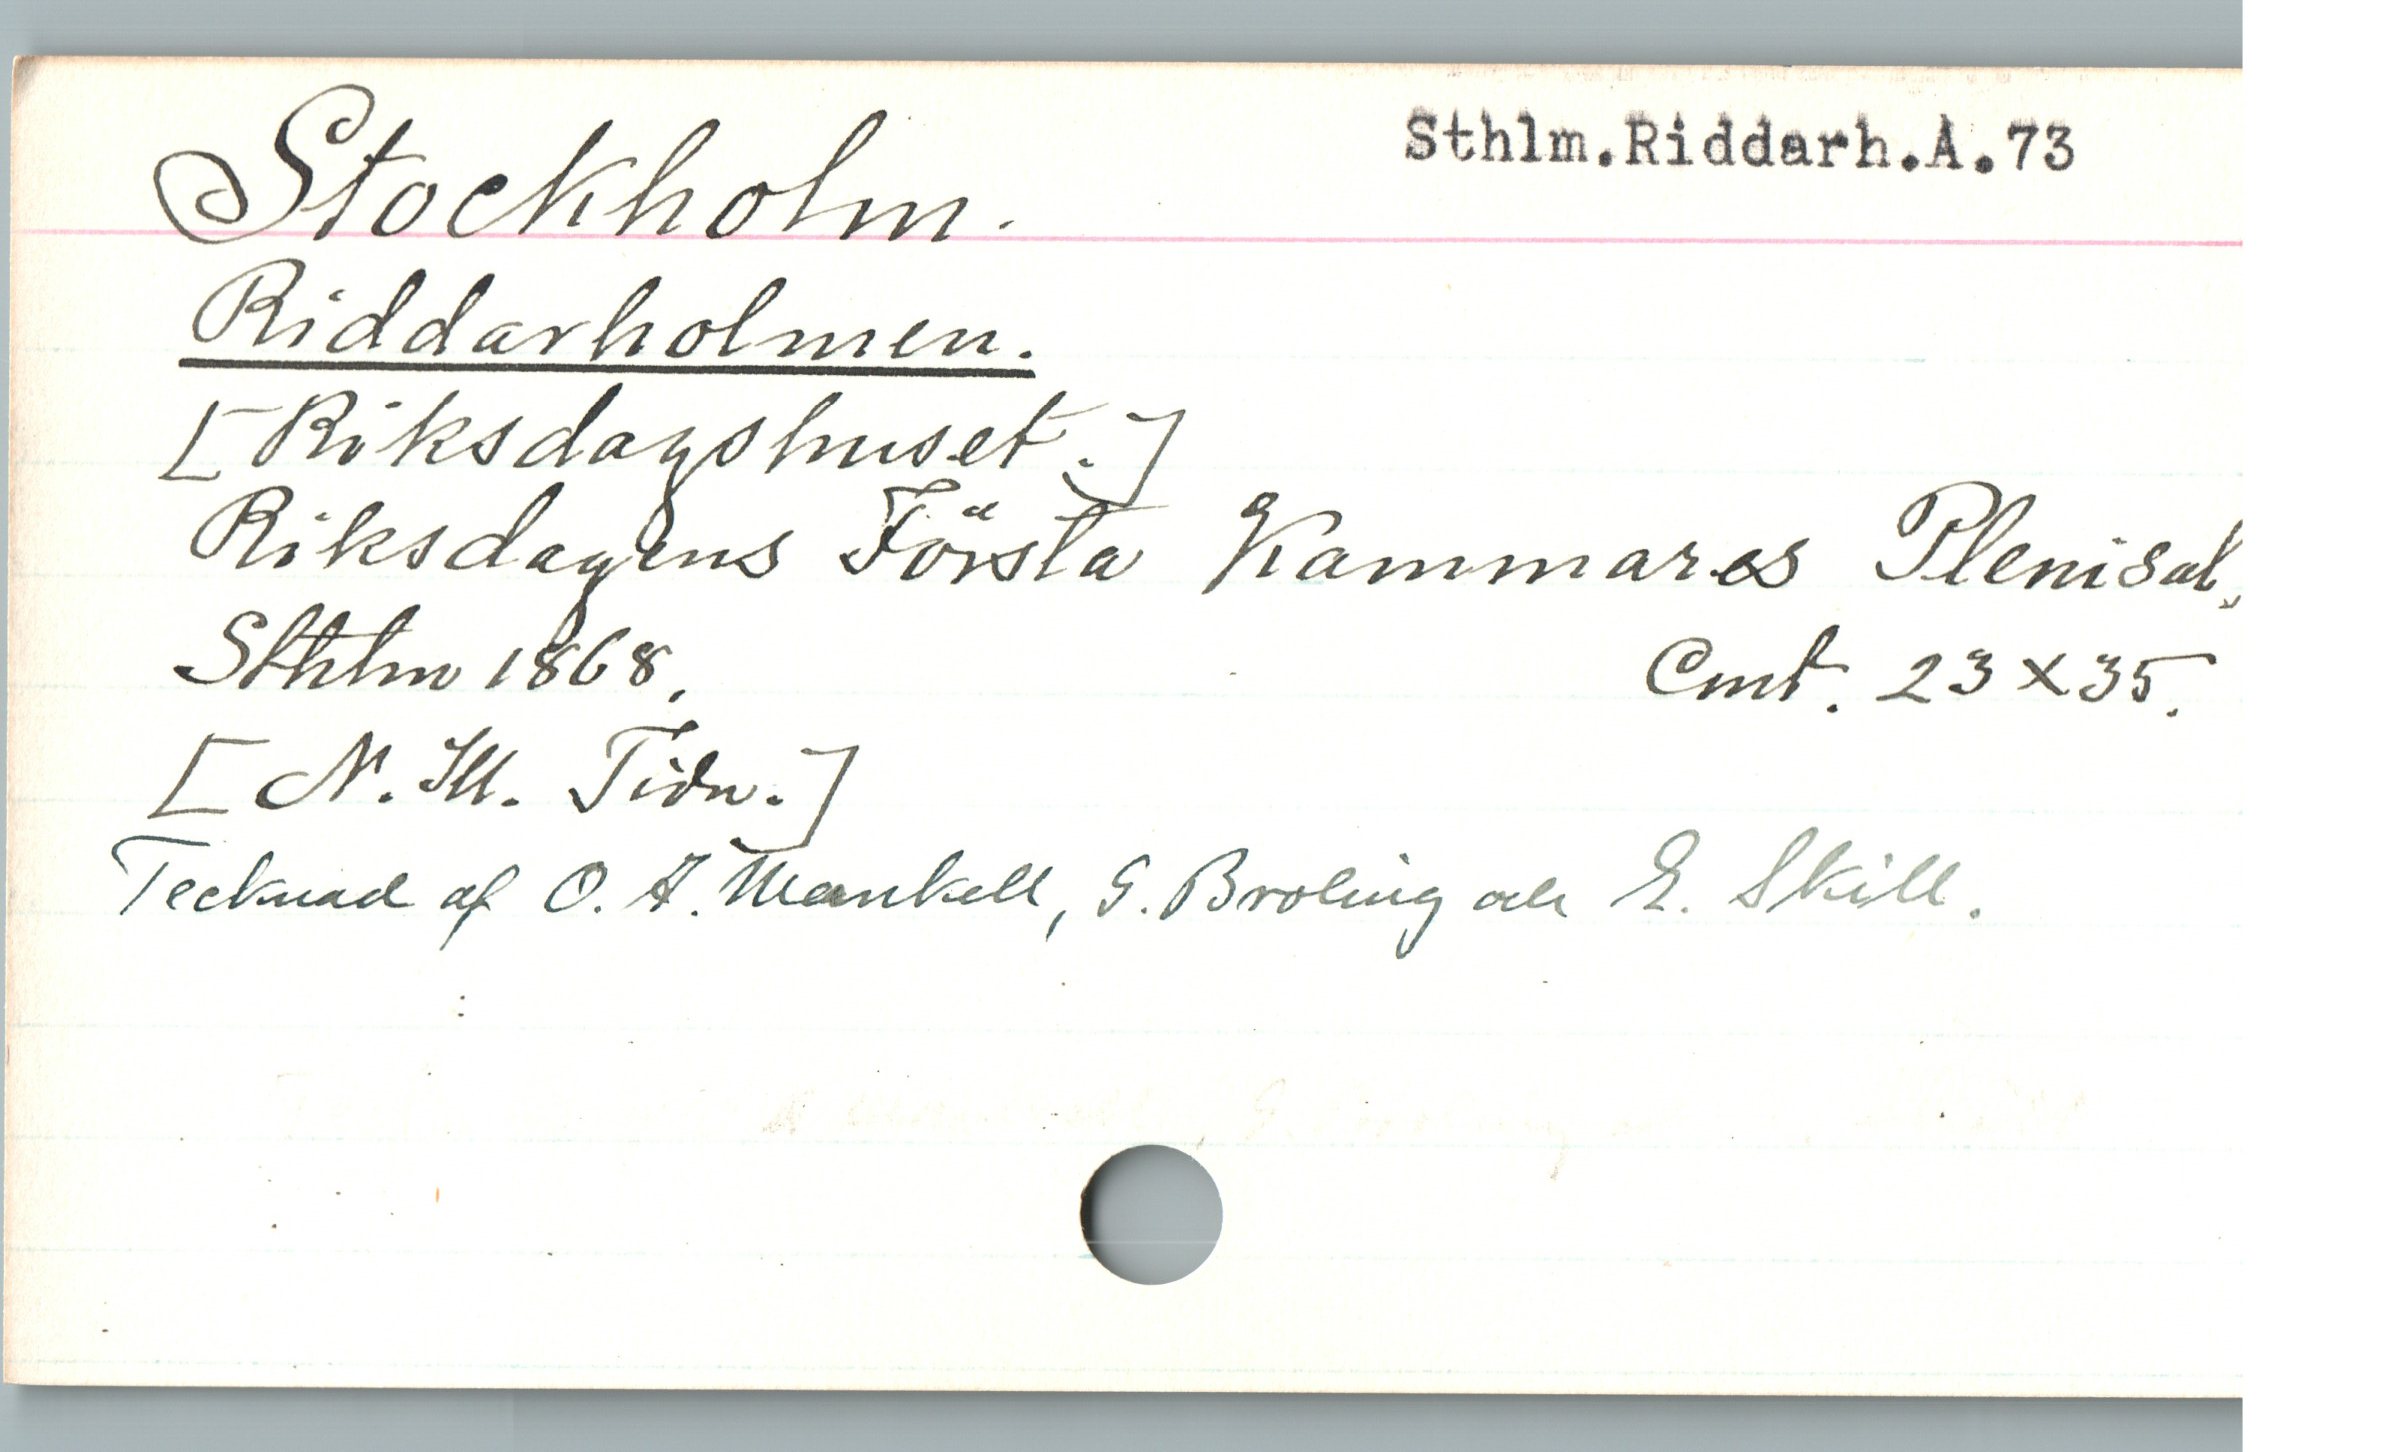 Stockholm.
Sthlm.Riddarh.A.73
Riddarholmen.
[Riksdagshuset.]
Riksdagens Första Kammares Plenisal,
Sthlm 1868. Cmt. 23 x 35.
[N. Ill. Tidn.]
Tecknad af O. A. Mankell, G. Broling och E. Skill.